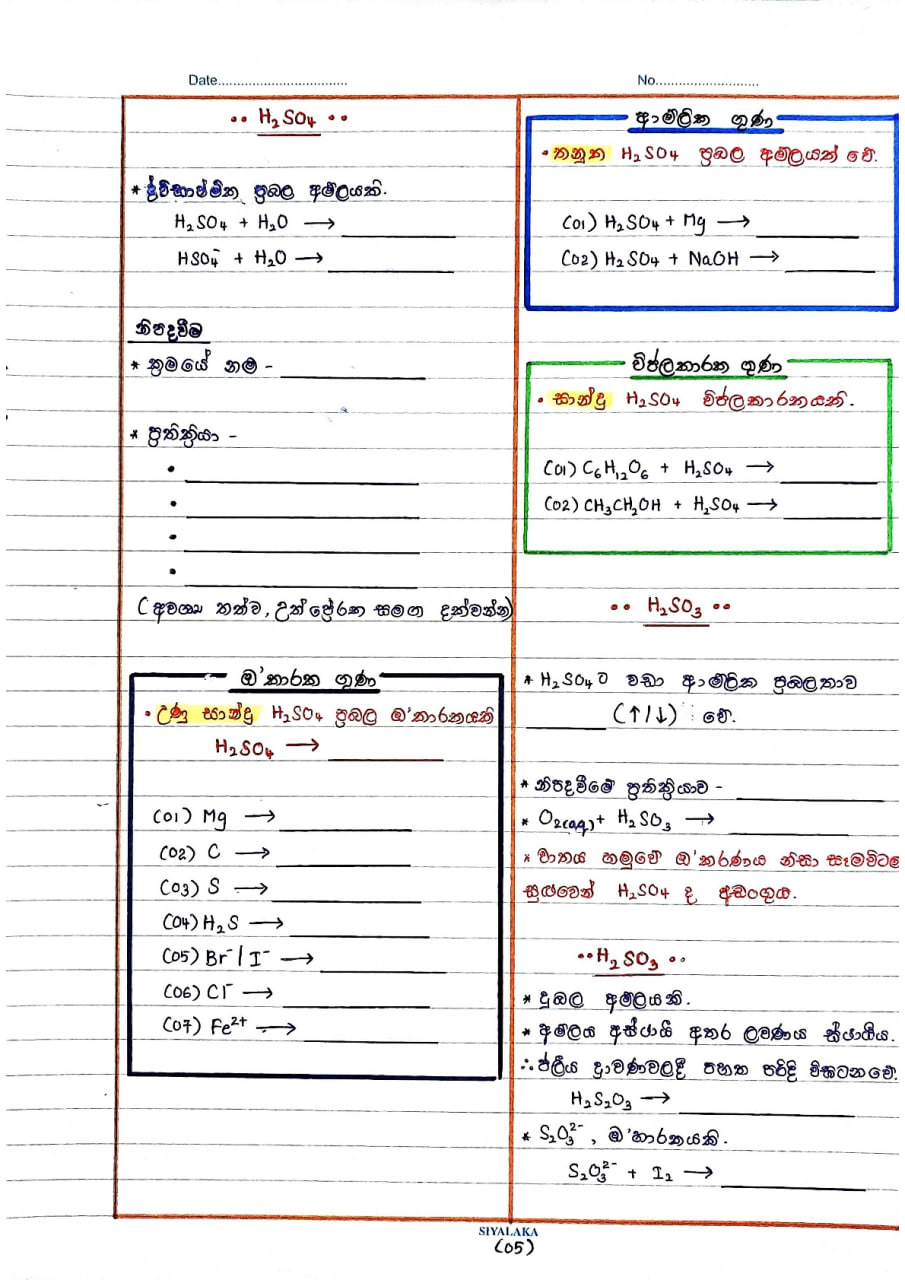 Date.................................
No..........................
•• H₂SO₄ ••
* ද්විභාෂ්මික ප්‍රබල අම්ලයකි.
H₂SO₄ + H₂O ⟶ ________
HSO₄⁻ + H₂O ⟶ ________
නිපදවීම
* ක්‍රමයේ නම - ________
* ප්‍රතික්‍රියා -
• ________
• ________
• ________
• ________
(අවශ්‍ය තත්ව, උත්ප්‍රේරක සමග දක්වන්න)
ඔ'කාරක ගුණ
• උණු සාන්ද්‍ර H₂SO₄ ප්‍රබල ඔ'කාරකයකි
H₂SO₄ ⟶ ________
(01) Mg ⟶ ________
(02) C ⟶ ________
(03) S ⟶ ________
(04) H₂S ⟶ ________
(05) Br⁻ / I⁻ ⟶ ________
(06) Cl⁻ ⟶ ________
(07) Fe²⁺ ⟶ ________
ආම්ලික ගුණ
• තනුක H₂SO₄ ප්‍රබල අම්ලයක් වේ.
(01) H₂SO₄ + Mg ⟶ ________
(02) H₂SO₄ + NaOH ⟶ ________
විජලකාරක ගුණ
• සාන්ද්‍ර H₂SO₄ විජලකාරකයකි.
(01) C₆H₁₂O₆ + H₂SO₄ ⟶ ________
(02) CH₃CH₂OH + H₂SO₄ ⟶ ________
•• H₂SO₃ ••
* H₂SO₄ ට වඩා ආම්ලික ප්‍රබලතාව
________ (↑/↓) වේ.
* නිපදවීමේ ප්‍රතික්‍රියාව - ________
* O₂(aq) + H₂SO₃ ⟶ ________
* වාතය හමුවේ ඔ'කරණය නිසා සෑමවිටම
සුළුවෙන් H₂SO₄ ද අඩංගුය.
•• H₂SO₃ ••
* දුබල අම්ලයකි.
* අම්ලය අස්ථායී අතර ලවණය ස්ථායීය.
∴ ජලීය ද්‍රාවණවලදී පහත පරිදි විඝටනවේ.
H₂S₂O₃ ⟶ ________
* S₂O₃²⁻, ඔ'හාරකයකි.
S₂O₃²⁻ + I₂ ⟶ ________
SIYALAKA
(05)